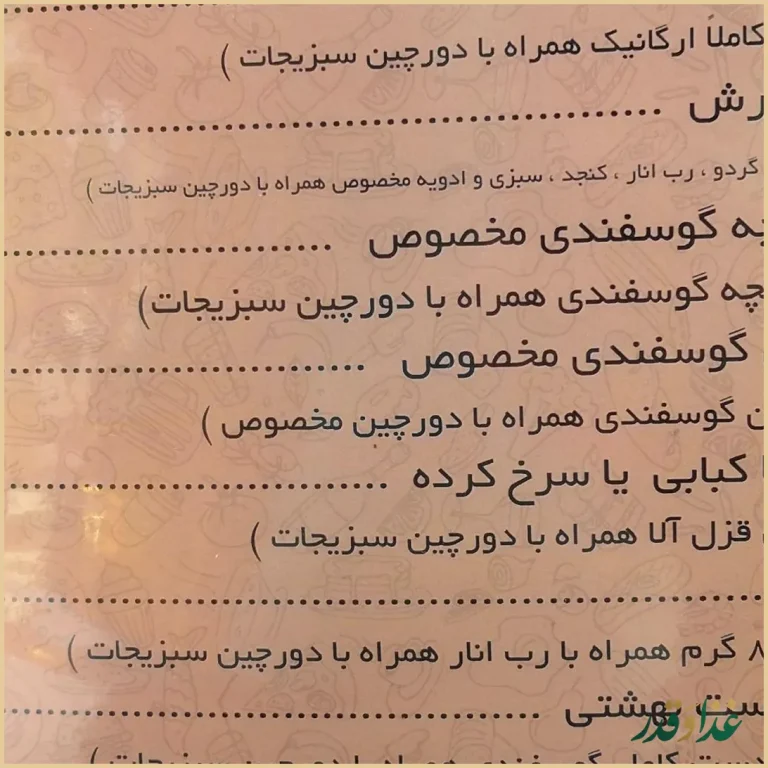 کاملاً ارگانیک همراه با دورچین سبزیجات )
رش ..............................
گردو ، رب انار ، کنجد ، سبزی و ادویه مخصوص همراه با دورچین سبزیجات )
گوسفندی مخصوص ..............................
گوسفندی همراه با دورچین سبزیجات)
گوسفندی مخصوص ..............................
گوسفندی همراه با دورچین مخصوص )
کبابی یا سرخ کرده ..............................
قزل آلا همراه با دورچین سبزیجات )
..............................
گرم همراه با رب انار همراه با دورچین سبزیجات )
بهشتی ..............................
کامل گوسفندی همراه با دورچین سبزیجات )
غذا و قدر